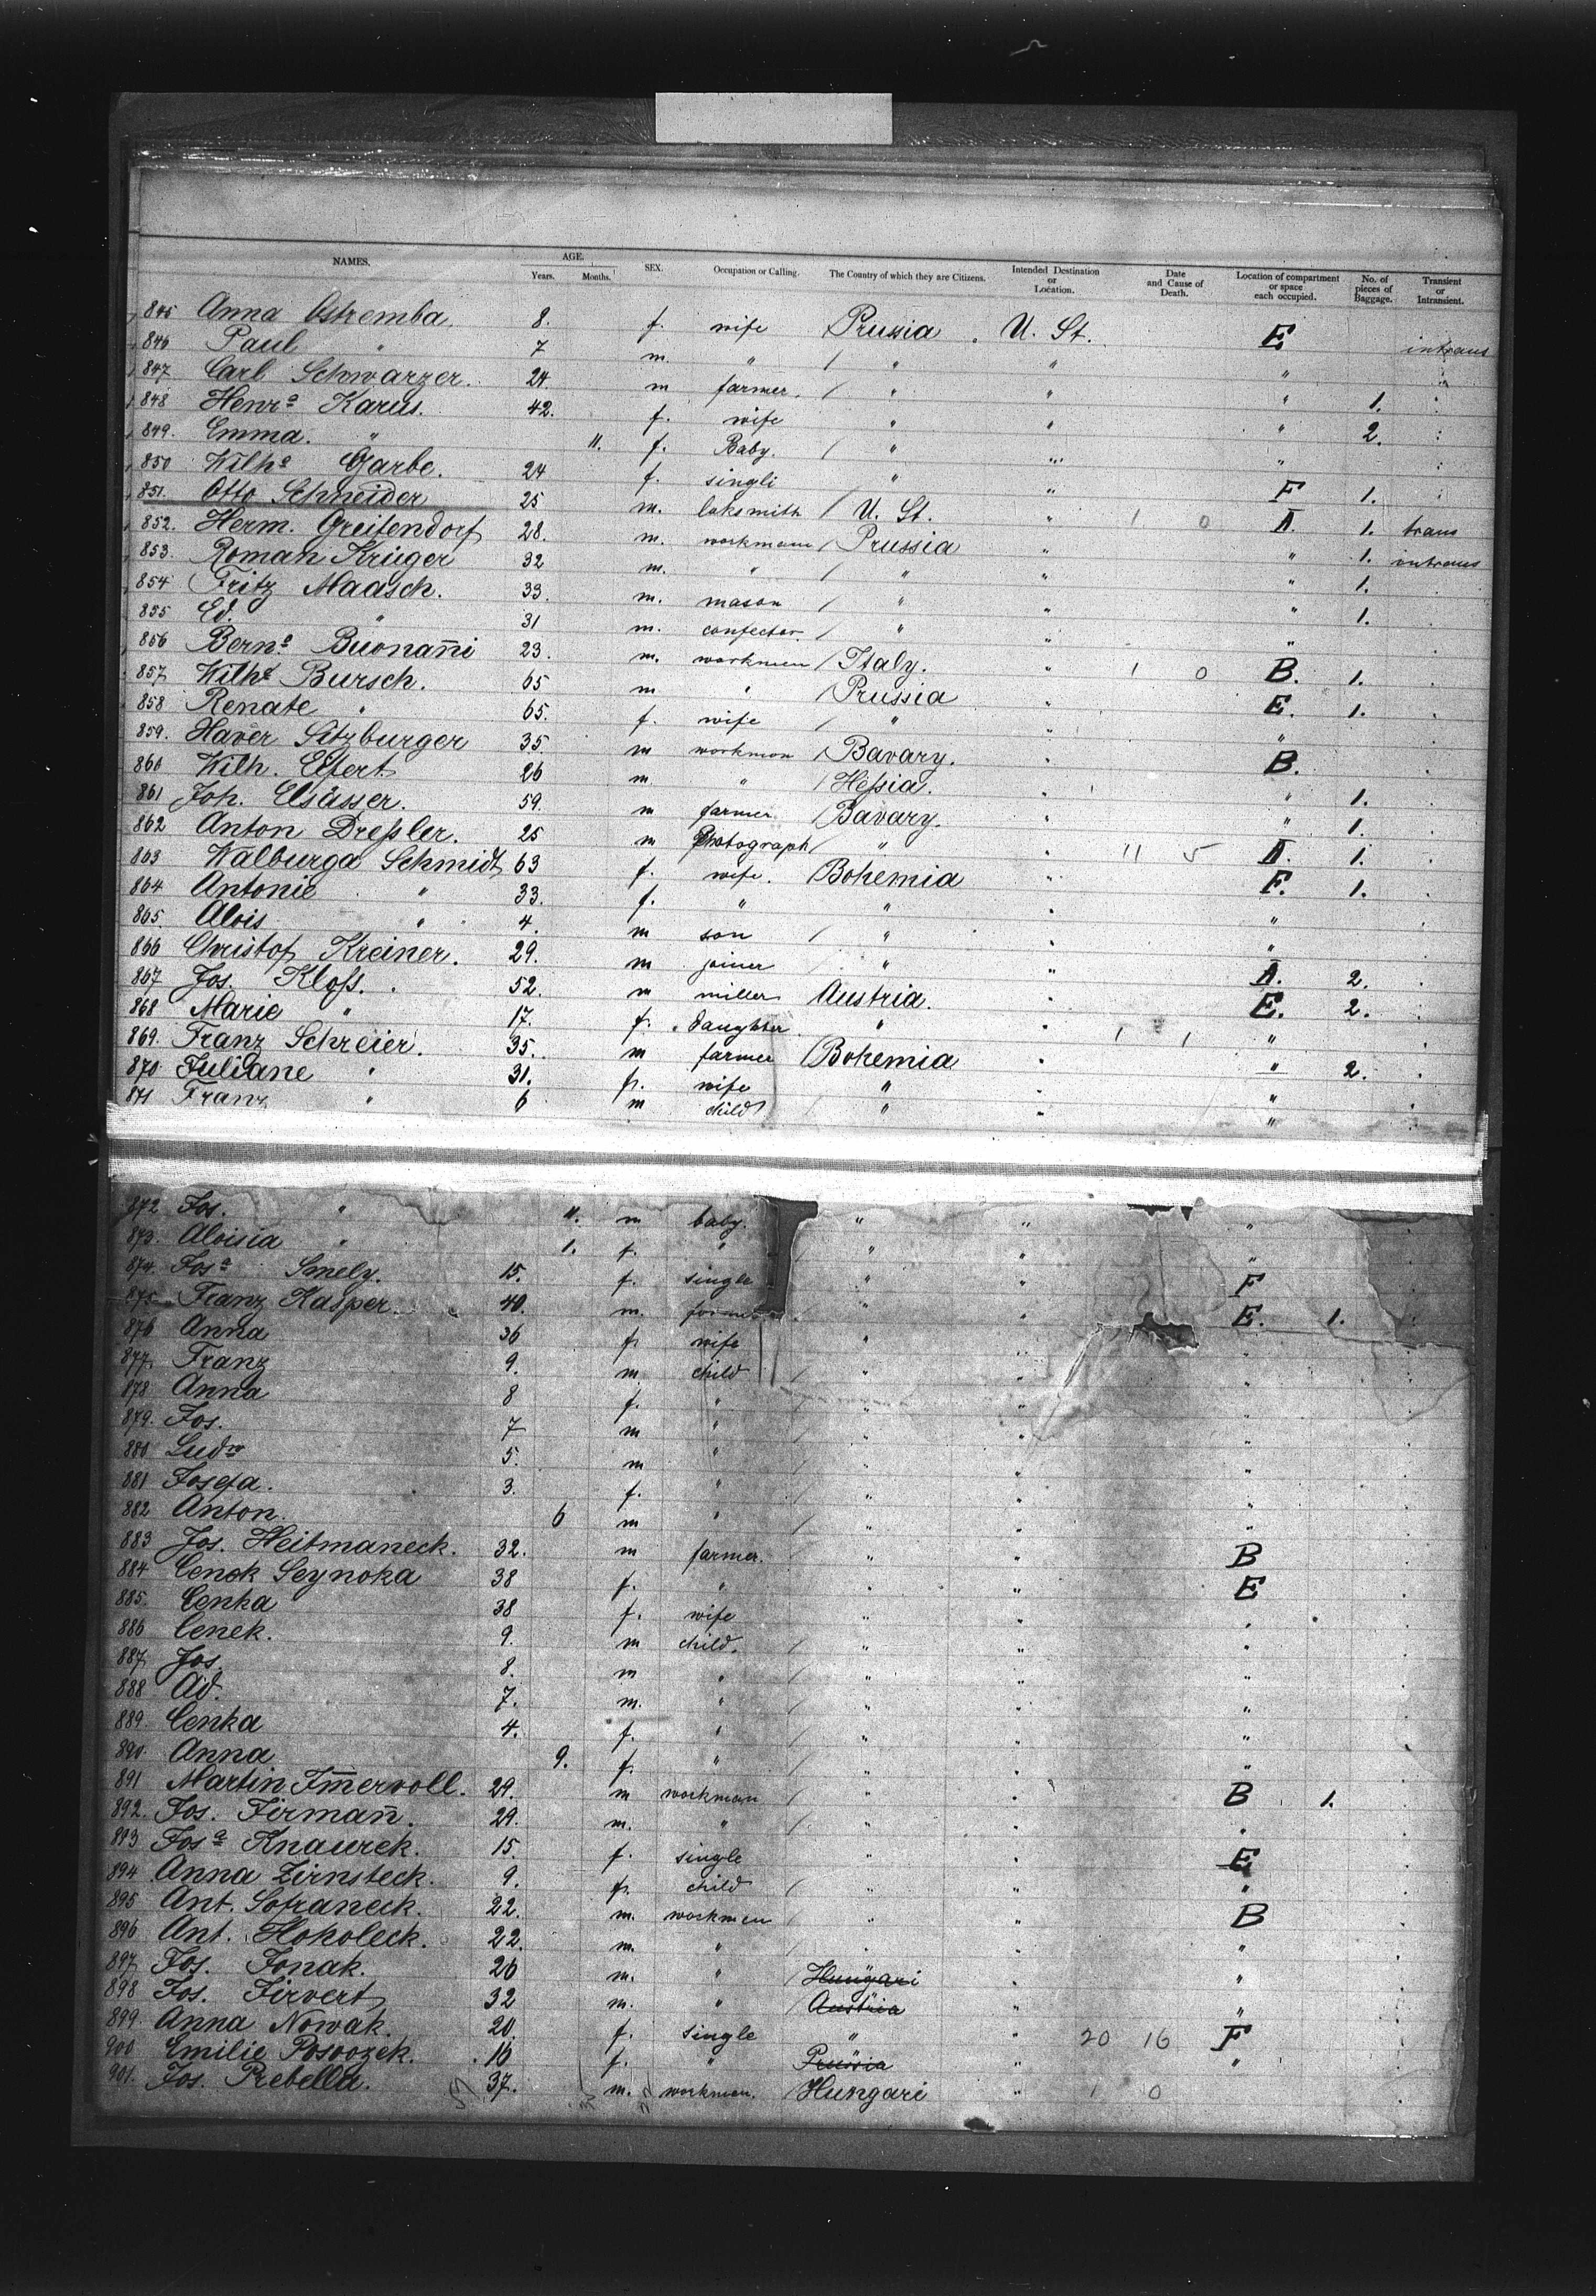 NAMES. AGE. Years. Months. SEX. Occupation or Calling. The Country of which they are Citizens. Intended Destination or Location. Date and Cause of Death. Location of compartment or space each occupied. No. of pieces of Baggage. Transient or Intransient.
845 Anna Ostremba. 8. f. wife Prussia. U. St. E intrans
846 Paul " 7 m. " / " " "
847 Carl Schwarzer. 24. m farmer. / " " " 1.
848 Henr.a Karus. 42. f. wife " " " 2.
849. Emma. " 11. f. Baby. / " " "
850 Wilh.e Garbe. 24 f. singli " " F 1.
851. Otto Schneider 25 m. loksmith / U. St. " 1 0 A. 1. trans
852. Herm. Greifendorf 28. m. workman / Prussia " " 1. intrans
853. Roman Krüger 32 m. " / " " " 1.
854 Fritz Maasch. 33. m. mason / " " " 1.
855 Ed. " 31 m. confector. / " " "
856 Bern.o Buonam̄i 23. m. workmen / Italy. " 1 0 B. 1.
857 Wilh. Bursch. 65 m " / Prussia " E. 1.
858 Renate " 65. f. wife / " " "
859. Haver Sitzburger 35. m workman / Bavary. " B.
860 Wilh. Elfert 26 m. " / Heſsia. " " 1.
861 Joh. Elsässer. 59. m farmer / Bavary. " " 1.
862 Anton Dreſsler. 25 m Photograph / " " 11 5 A. 1.
863 Walburga Schmidt 63 f. wife. / Bohemia " F. 1.
864 Antonie " 33. f. " " " "
865. Alois " 4. m son / " " "
866 Christof Kreiner. 29. m joiner / " " A. 2.
867 Jos. Kloſs. 52. m miller Austria. " E. 2.
868 Marie " 17. f. daughter. " " 1 1 "
869. Franz Schreier. 35. m farmer / Bohemia " " 2.
870 Juliane " 31. f. wife " " "
871 Franz " 6 m child / " " "
872 Jos. " 11. m baby. " " "
873. Aloisia " 1. f. " / " " "
874. Jos.a Smely. 15. f. single " " F
875 Franz Kasper. 40. m. farmer " " E. 1.
876 Anna 36 f. wife " " "
877. Franz 9. m. child / " " "
878. Anna 8 f. " / " " "
879. Jos. 7 m " / " " "
880 Lud. 5. m " / " "
881 Josefa. 3. f. " / " " "
882 Anton. 6 m " / " "
883 Jos. Heitmaneck. 32. m farmer. / " " B
884 Cenek Seynoka 38 f. " " " E
885. Cenka 38 f. wife " " "
886 Cenek. 9. m child. / " " "
887 Jos. 8. m " / " " "
888 Ad. 7. m. " / " " "
889. Cenka 4. f. " / " " "
890. Anna 9. f. " / " "
891 Martin Im̄ervoll. 29. m workman / " " B 1.
892. Jos. Firman̄. 29. m. " / " " "
893 Jos.a Knaurek. 15. f. single " " E
894 Anna Zirnsteck. 9. f. child / " " "
895 Ant. Sofraneck. 22. m. workmen / " " B
896 Ant. Hokoleck. 22. m. " / " "
897 Jos. Jonak. 26 m. " / Hungari " "
898 Jos. Firvert 32 m. " / Austria " "
899. Anna Nowak. 20. f. single " " 20 16 F
900 Emilie Posvozek. 16 f. " Prussia " "
901. Jos. Rebella. 37. m. workman. / Hungari " 1 0